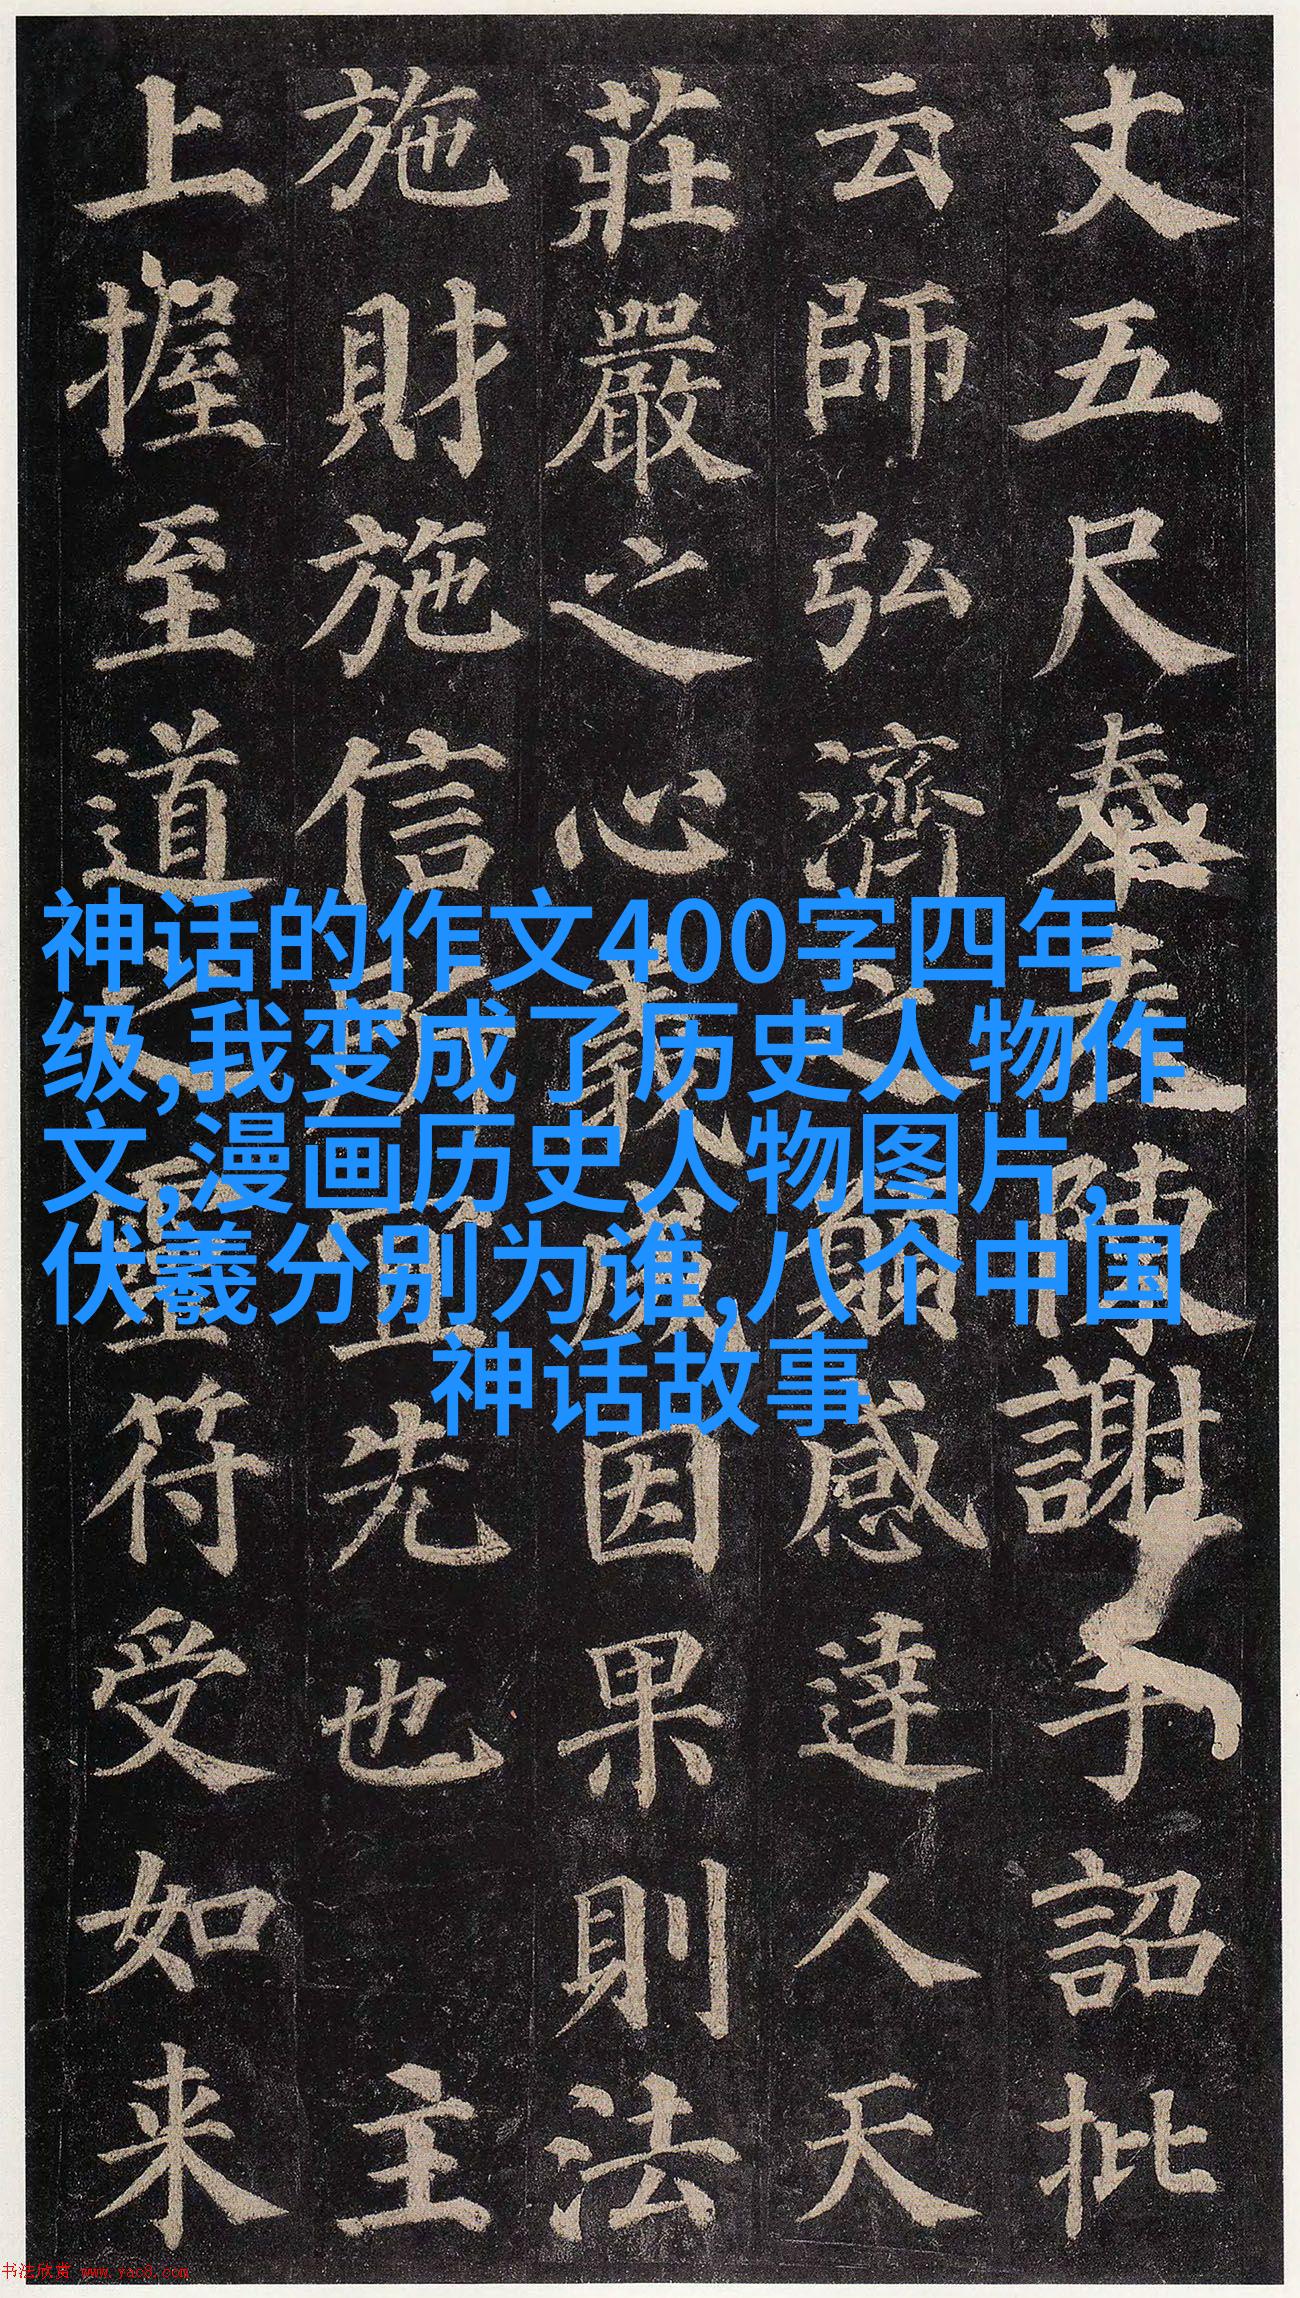 神话的作文400字四年
级,我变成了历史人物作
文,漫画历史人物图片,
伏羲分别为谁,八个中国
神话故事
丈五尺奉表陳謝手詔批
云師弘濟之感達人天
莊嚴之心因果則法
施財施信所先也 主
上握至道之符受如来
书法欣赏 www.yac8.com